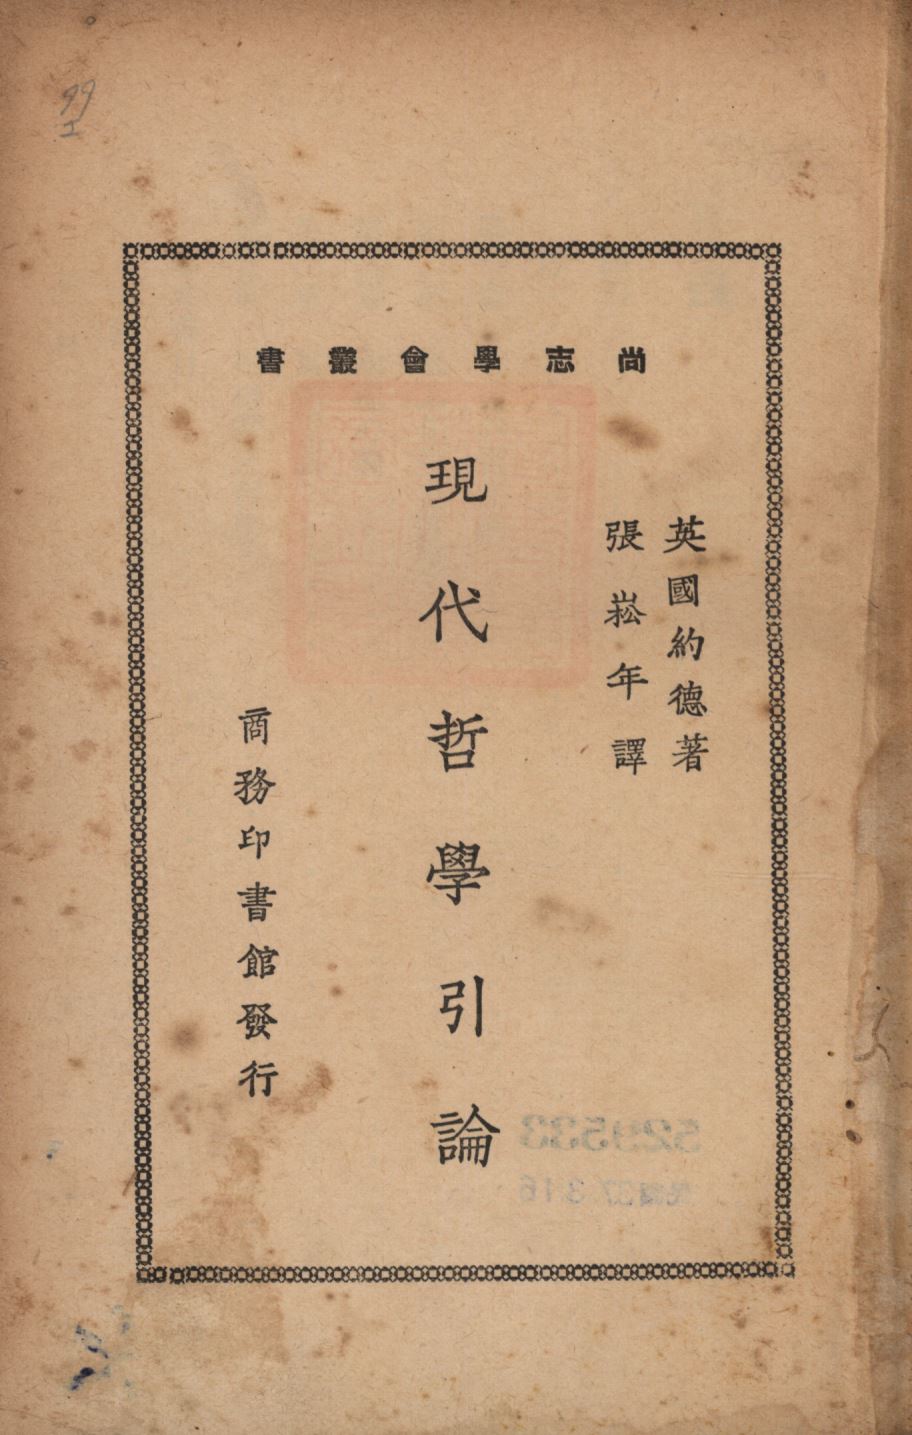 尚志學會叢書
英國約德著
張崧年譯
現代哲學引論
商務印書館發行